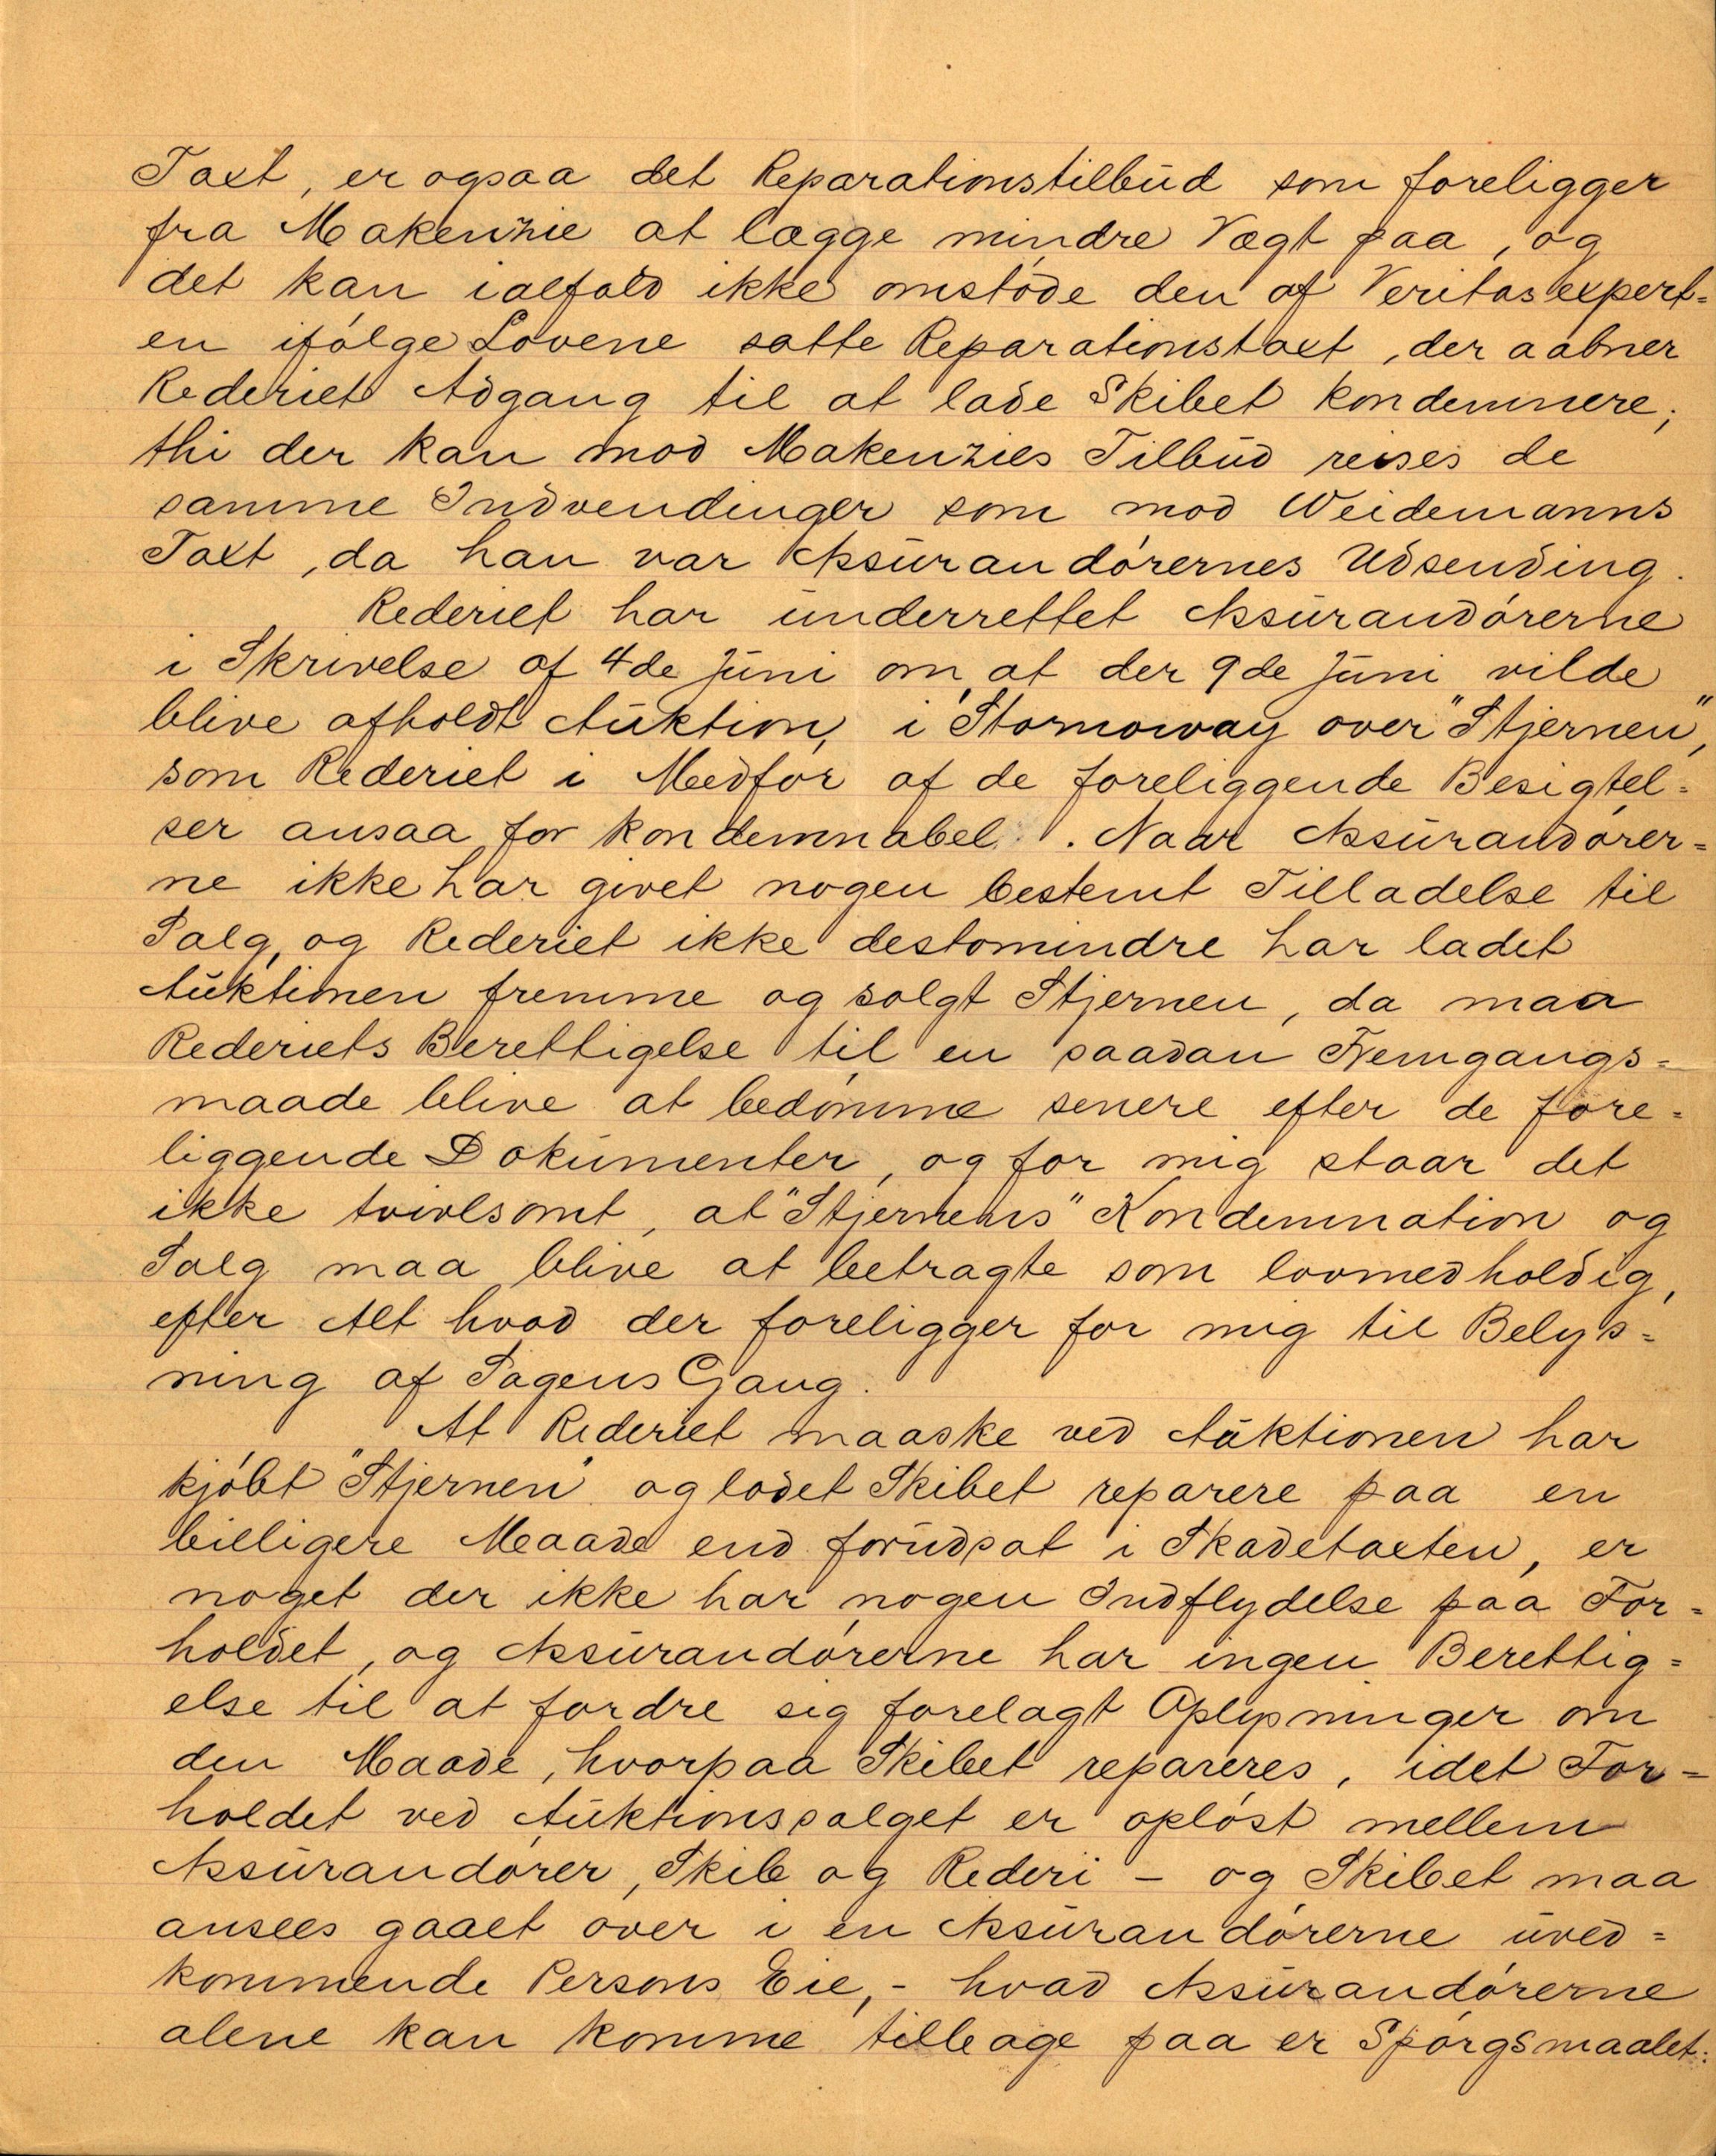 Taxt, er ogsaa det Reparationstilbud som foreligger
fra Makenzie at lægge mindre Vægt paa, og
det kan ialfald ikke omstöde den af Veritasexpert=
en ifölge Lovene satte Reparationstaxt, der aabner
Rederiet Adgang til at lade Skibet kondemnere;
thi der kan mod Makenzies Tilbud reises de
samme Indvendinger som mod Weidemanns
Taxt, da han var Assurandörernes Udsending.
Rederiet har underrettet Assurandörerne
i Skrivelse af 4de Juni om, at der 9de Juni vilde
blive afholdt Auktion, i Stornoway over "Stjernen",
som Rederiet i Medför af de foreliggende Besigtel=
ser ansaa for kondemnabel. Naar Assurandörer=
ne ikke har givet nogen bestemt Tilladelse til
Salg, og Rederiet ikke destomindre har ladet
Auktionen fremme og solgt Stjernen, da maa
Rederiets Berettigelse til en saadan Fremgangs=
maade blive at bedömme senere efter de fore=
liggende Dokumenter, og for mig staar det
ikke tvivlsomt, at "Stjernens" Kondemnation og
Salg maa blive at betragte som lovmedholdig,
efter Alt hvad der foreligger for mig til Belys=
ning af Sagens Gang.
At Rederiet maaske ved Auktionen har
kjöbt "Stjernen" og ladet Skibet reparere paa en
billigere Maade end forudsat i Skadetaxten, er
noget der ikke har nogen Indflydelse paa For=
holdet, og Assurandörerne har ingen Berettig=
else til at fordre sig forelagt Oplysninger om
den Maade, hvorpaa Skibet repareres, idet For=
holdet ved Auktionssalget er oplöst mellem
Assurandörer, Skib og Rederi - og Skibet maa
ansees gaaet over i en Assurandörerne uved=
kommende Persons Eie, - hvad Assurandörerne
alene kan komme tilbage paa er Spörgsmaalet: